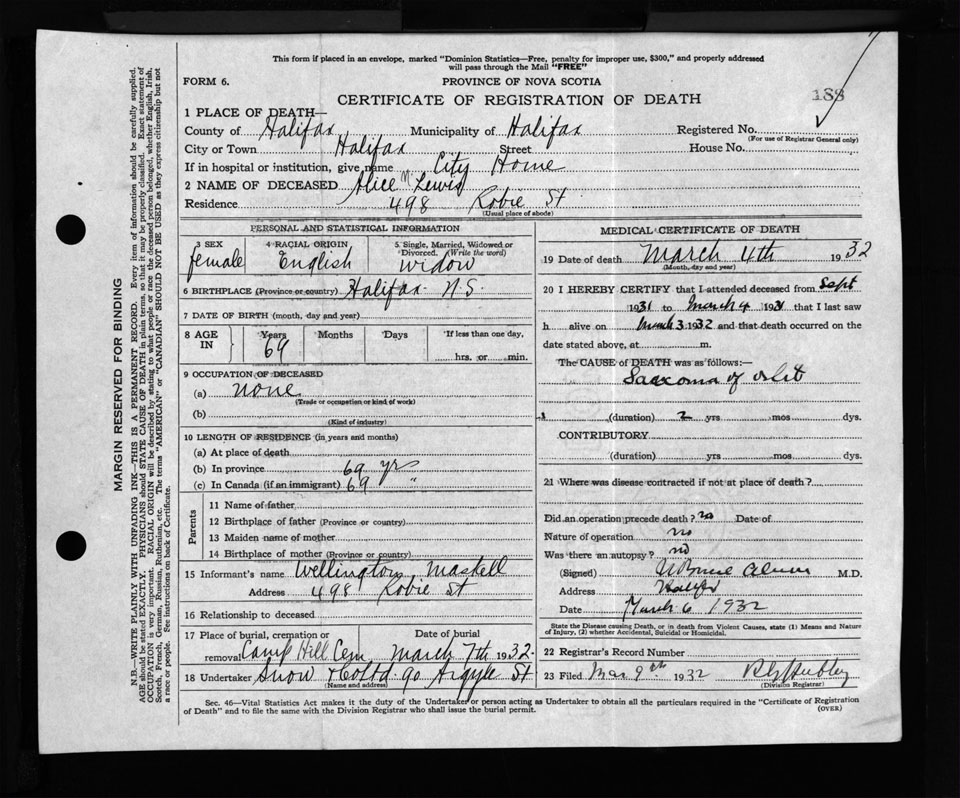 This form if placed in an envelope, marked "Dominion Statistics—Free, penalty for improper use, $300," and properly addressed
will pass through the Mail "FREE"
FORM 6. PROVINCE OF NOVA SCOTIA
CERTIFICATE OF REGISTRATION OF DEATH
188
1 PLACE OF DEATH—
County of Halifax Municipality of Halifax Registered No.
(For use of Registrar General only)
City or Town Halifax Street House No.
If in hospital or institution, give name City Home
2 NAME OF DECEASED Alice M Lewis
Residence 498 Robie St
(Usual place of abode)
PERSONAL AND STATISTICAL INFORMATION
3 SEX 4 RACIAL ORIGIN 5 Single, Married, Widowed or
Divorced. (Write the word)
female English widow
6 BIRTHPLACE (Province or country) Halifax N.S.
7 DATE OF BIRTH (month, day and year)
8 AGE IN Years Months Days If less than one day,
69 hrs. or min.
9 OCCUPATION OF DECEASED
(a) none
(Trade or occupation or kind of work)
(b)
(Kind of industry)
10 LENGTH OF RESIDENCE (in years and months)
(a) At place of death
(b) In province 69 yrs
(c) In Canada (if an immigrant) 69 "
Parents
11 Name of father
12 Birthplace of father (Province or country)
13 Maiden name of mother
14 Birthplace of mother (Province or country)
15 Informant's name Wellington Maskell
Address 498 Robie St
16 Relationship to deceased
17 Place of burial, cremation or Date of burial
removal Camp Hill Cem March 7th 1932
18 Undertaker Snow & Co Ltd. 90 Argyle St
(Name and address)
MEDICAL CERTIFICATE OF DEATH
19 Date of death March 4th 1932
(Month, day and year)
20 I HEREBY CERTIFY that I attended deceased from Sept
1931 to March 4 1931 that I last saw
h alive on March 3 1932 and that death occurred on the
date stated above, at m.
The CAUSE OF DEATH was as follows:—
Sarcoma of orbit
(duration) 2 yrs mos dys.
CONTRIBUTORY
(duration) yrs mos dys.
21 Where was disease contracted if not at place of death?
Did an operation precede death? no Date of
Nature of operation no
Was there an autopsy? no
(Signed) M.D.
Address Halifax
Date March 6 1932
State the Disease causing Death, or in death from Violent Causes, state (1) Means and Nature
of Injury, (2) whether Accidental, Suicidal or Homicidal.
22 Registrar's Record Number
23 Filed Mar 9th 1932
(Division Registrar)
Sec. 46—Vital Statistics Act makes it the duty of the Undertaker or person acting as Undertaker to obtain all the particulars required in the "Certificate of Registration
of Death" and to file the same with the Division Registrar who shall issue the burial permit. (OVER)
MARGIN RESERVED FOR BINDING
N.B.—WRITE PLAINLY WITH UNFADING INK—THIS IS A PERMANENT RECORD. Every item of information should be carefully supplied.
AGE should be stated EXACTLY. PHYSICIANS should STATE CAUSE OF DEATH in plain terms, so that it may be properly classified. Exact statement of
OCCUPATION is very important. RACIAL ORIGIN will be described by stating to what people or race the deceased person belonged, whether English, Irish,
Scotch, French, German, Russian, Ruthenian, etc. The terms "AMERICAN" or "CANADIAN" SHOULD NOT BE USED as they express citizenship but not
a race or people. See instructions on back of Certificate.